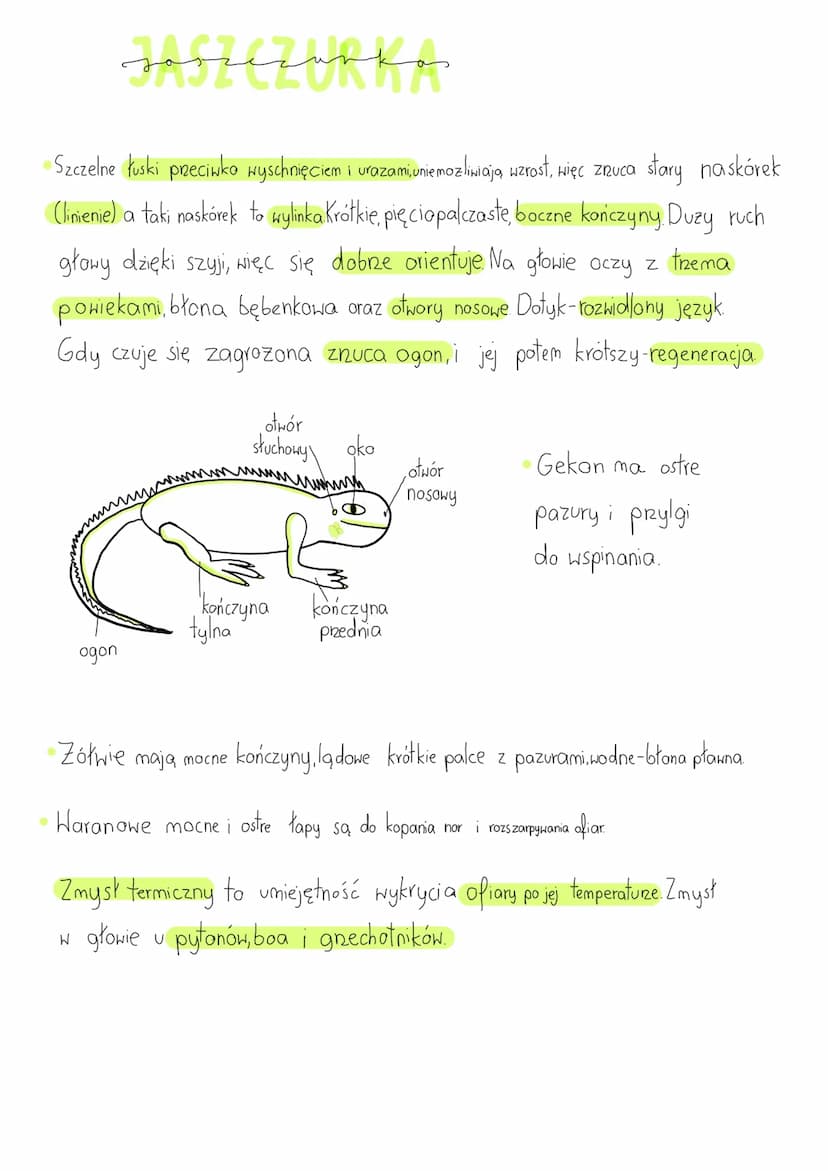 JASZCZURKA
jaszczurka
• Szczelne łuski przeciwko wyschnięciem i urazami, uniemożliwiają wzrost, więc zrzuca stary naskórek
(linienie) a taki naskórek to wylinka. Krótkie, pięciopalczaste, boczne kończyny. Duży ruch
głowy dzięki szyji, więc się dobrze orientuje. Na głowie oczy z trzema
powiekami, błona bębenkowa oraz otwory nosowe. Dotyk-rozwidlony język.
Gdy czuje się zagrożona zrzuca ogon, i jej potem krótszy-regeneracja.
otwór
słuchowy
oko
otwór
nosowy
kończyna
tylna
kończyna
przednia
ogon
• Gekon ma ostre
pazury i przylgi
do wspinania.
• Żółwie mają mocne kończyny, lądowe krótkie palce z pazurami, wodne-błona pławna.
• Waranowe mocne i ostre łapy są do kopania nor i rozszarpywania ofiar.
Zmysł termiczny to umiejętność wykrycia ofiary po jej temperaturze. Zmysł
w głowie u pytonów, boa i grzechotników.